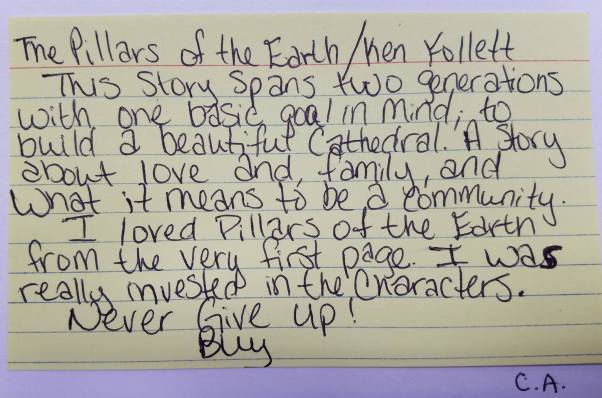 The Pillars of the Earth/Ken Follett
This Story Spans two generations
with one basic goal in mind; to
build a beautiful Cathedral. A Story
about love and, family, and
what it means to be a community.
I loved Pillars of the Earth
from the very first page. I was
really invested in the Characters.
Never Give up!
Buy
C.A.